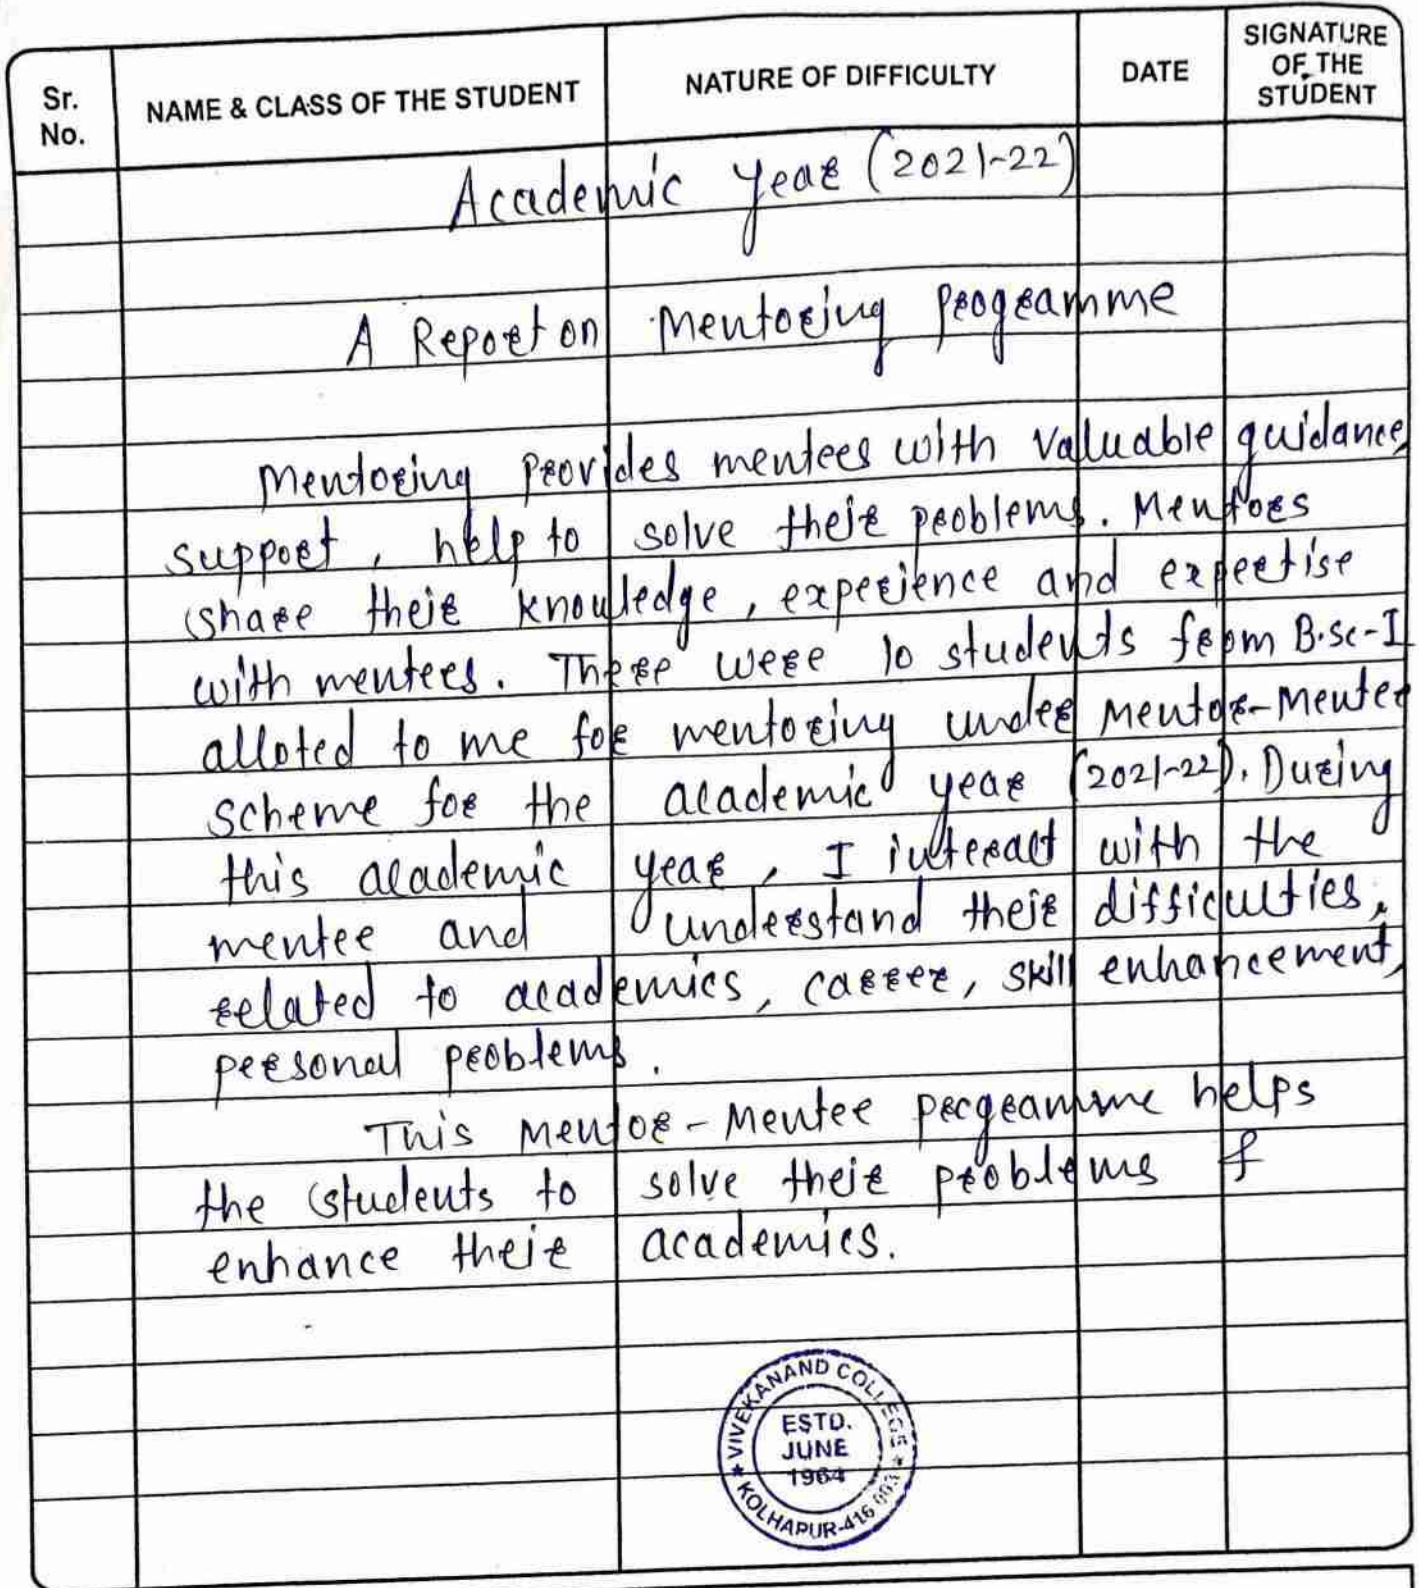 Sr. No.
NAME & CLASS OF THE STUDENT
NATURE OF DIFFICULTY
DATE
SIGNATURE OF THE STUDENT
Academic Year (2021-22)
A Report on Mentoring Programme
Mentoring provides mentees with valuable guidance,
support, help to solve their problems. Mentors
share their knowledge, experience and expertise
with mentees. There were 10 students from B.sc-I
alloted to me for mentoring under Mentor-Mentee
scheme for the academic year (2021-22). During
this academic year, I interact with the
mentee and understand their difficulties,
related to academics, career, skill enhancement,
personal problems.
This Mentor-Mentee programme helps
the students to solve their problems &
enhance their academics.
★ VIVEKANAND COLLEGE ★
ESTD.
JUNE
1964
KOLHAPUR-416 003